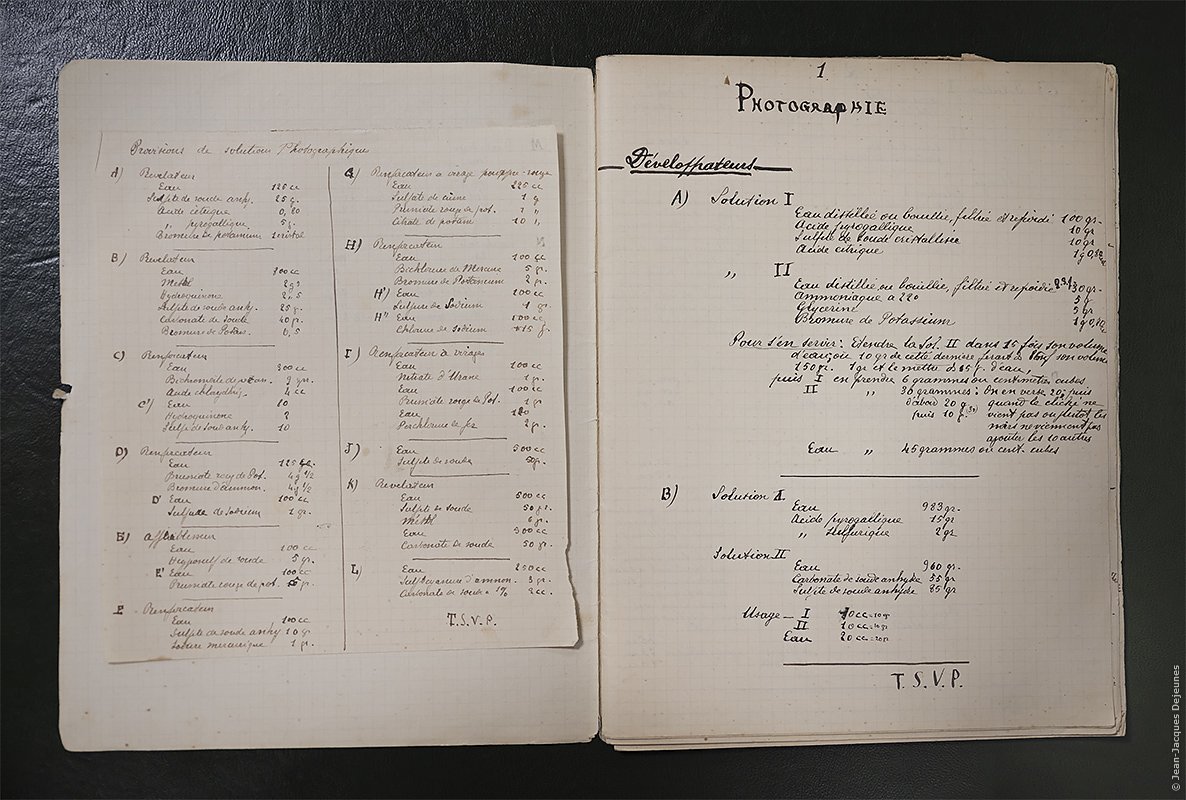 Provisions de solutions Photographiques
A) Revelateur
Eau 125 cc
Sulfite de soude anhy. 25 g.
Acide citrique 0,20
„ pyrogallique 5 g.
Bromure de potassium 1 cristal
B) Revelateur
Eau 800 cc
Metol
Hydroquinone
Sulfite de soude anhy. 25 g.
Carbonate de soude 40 gr.
Bromure de Potass. 0,5
C) Renforcateur
Eau 300 cc
Bichromate de
Acide chlorydriq. 4 cc
C') Eau
Hydroquinone
Sulfite de soude anhy. 10
D) Renforcateur
Eau 125
Prussiate rouge de Pot. 4 g ½
Bromure d'ammon. 4 g ½
D' Eau 100 cc
Sulfure de Sodium 1 gr.
E) Affaiblisseur
Eau 100 cc
Hyposulf de soude 5 gr.
E' Eau 100 cc
Prussiate rouge de pot. 5 gr.
F Renforcateur
Eau 100 cc
Sulfite de soude anhy 10 gr
Iodure mercurique 1 gr.
G) Renforcateur a virage pourpre-rouge
Eau 225 cc
Sulfate de cuivre 1 g
Prussiate rouge de pot.
Citrate de potass 10
H) Renforcateur
Eau 100 cc
Bichlorure de Mercure 5 gr.
Bromure de Potassium 2 gr.
H') Eau 100 cc
Sulfure de Sodium 1 gr.
H" Eau 100 cc
Chlorure de Sodium 15 g.
I) Renforcateur de virages
Eau 100 cc
Nitrate d'Urane 1 gr.
Eau 100 cc
Prussiate rouge de Pot. 1 gr
Eau
Perchlorure de fer 2 gr.
J) Eau 500 cc
Sulfite de soude 50 gr.
K) Revelateur
Eau 500 cc
Sulfite de soude 50 gr.
Metol 6 gr.
Eau 500 cc
Carbonate de soude 50 gr.
L) Eau 250 cc
Sulfocyanure d'ammon. 3 gr.
Carbonate de soude a 1% 2 cc.
T.S.V.P.
1.
PHOTOGRAPHIE
Développateurs
A) Solution I
Eau distillée ou bouillie, filtrée et repoidi 100 gr.
Acide pyrogallique 10 gr
Sulfite de soude cristallisée 10 gr
Acide citrique 1 g
„ II
Eau distillée ou bouillie, filtrée et repoidie 30 gr.
Ammoniaque a 220 5 g
Glycerine 5 gr
Bromure de Potassium
Pour s'en servir: Etendre la Sol. II dans 15 fois son volume
d'eau, ou 10 gr de cette derniere font son volume
150 gr. 1 gr et le mettre d'eau,
puis I en prendre 6 grammes ou centimetres cubes
II „ 30 grammes: On en verse 20; puis
d'abord 20 g. quand le cliché ne
puis 10 g vient pas ou plutot, les
noirs ne viennent pas
ajouter les 10 autres
Eau „ 45 grammes ou cent. cubes
B) Solution I
Eau 983 gr.
Acide pyrogallique 15 gr
„ sulfurique 2 gr
Solution II
Eau 960 gr.
Carbonate de soude anhydre 55 gr
Sulfite de soude anhydre 85 gr
Usage — I 10 cc = 10 gr
II 10 cc = 10 gr
Eau 20 cc = 20 gr
T.S.V.P.
© Jean-Jacques Dejeunes